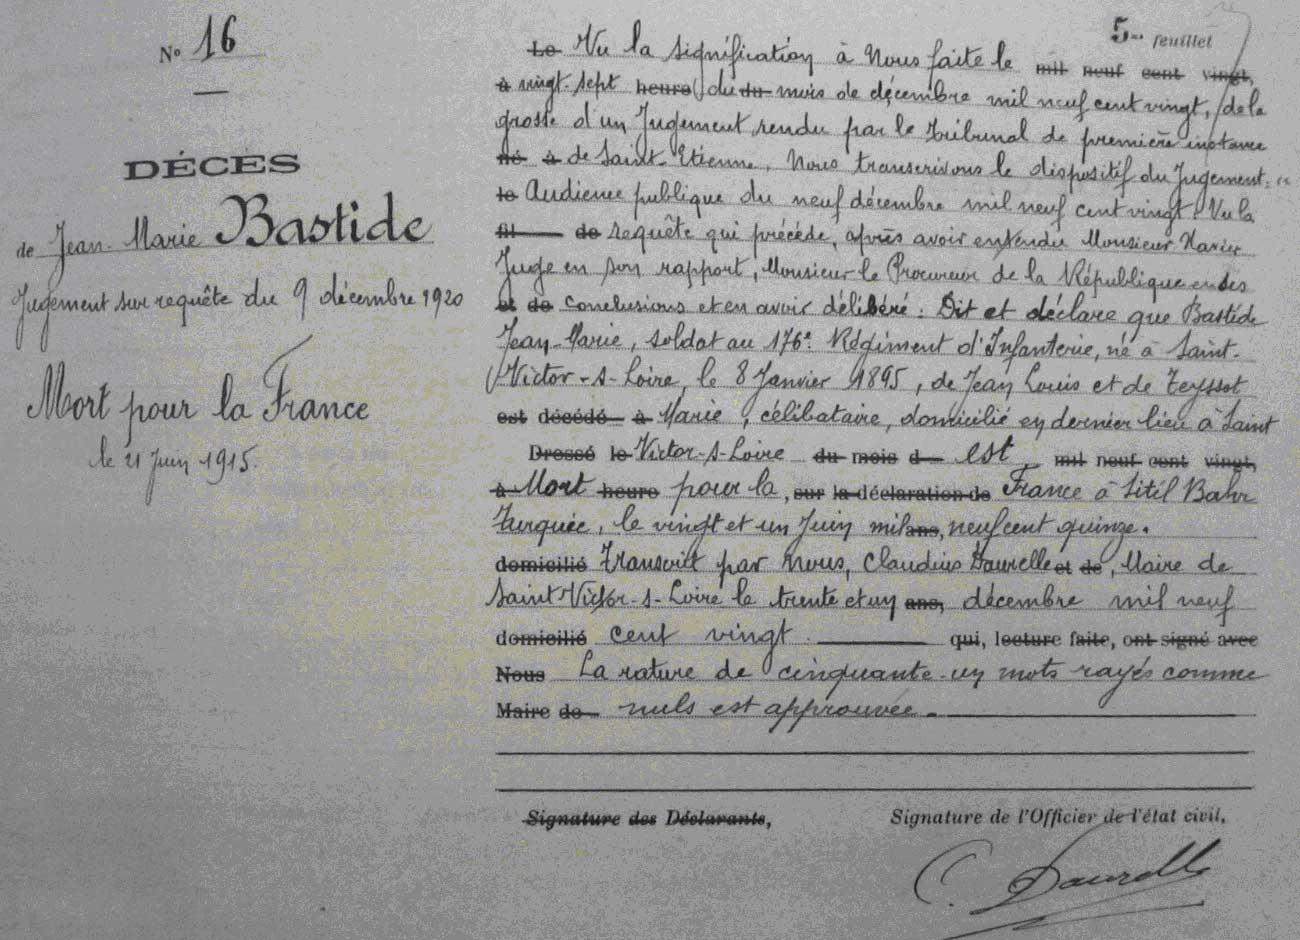 Nº 16
DÉCÈS
de Jean-Marie Bastide
Jugement sur requête du 9 décembre 1920
Mort pour la France
le 21 Juin 1915.
5me feuillet
Le Vu la signification à Nous faite le mil neuf cent vingt,
à vingt-sept heure du du mois de décembre mil neuf cent vingt, de la
grosse d'un Jugement rendu par le Tribunal de première instance
né à de Saint-Etienne, Nous transcrivons le dispositif du Jugement:
le Audience publique du neuf décembre mil neuf cent vingt. Vu la
fil de requête qui précède, après avoir entendu Monsieur Xavier
Juge en son rapport, Monsieur le Procureur de la République en ses
et de conclusions et en avoir délibéré : Dit et déclare que Bastide
Jean-Marie, soldat au 176e Régiment d'Infanterie, né à Saint-
Victor-s-Loire, le 8 Janvier 1895, de Jean Louis et de Teyssot
est décédé à Marie, célibataire, domicilié en dernier lieu à Saint
Dressé le Victor-s-Loire du mois d est mil neuf cent vingt,
à Mort heure pour la, sur la déclaration de France à Sitil Bahr
Turquie, le vingt et un Juin mil ans, neuf cent quinze.
domicilié Transcrit par Nous, Claudius Daurelle et de, Maire de
Saint Victor-s-Loire le trente et un ans, décembre mil neuf
domicilié cent vingt qui, lecture faite, ont signé avec
Nous La rature de cinquante-un mots rayés comme
Maire de nuls est approuvée.
Signature des Déclarants, Signature de l'Officier de l'état civil,
C. Daurelle